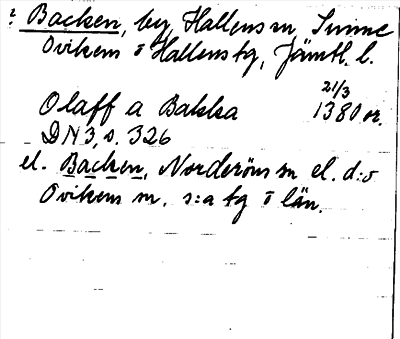 ? Backen, by Hallens sn, Sunne
Ovikens o Hallens tg, Jämtl. l.
21/3
Olaff a Bakka 1380 or.
DN3, s. 326
el. Backen, Norderöns sn el. d:o
Ovikens sn, s:a tg o län.